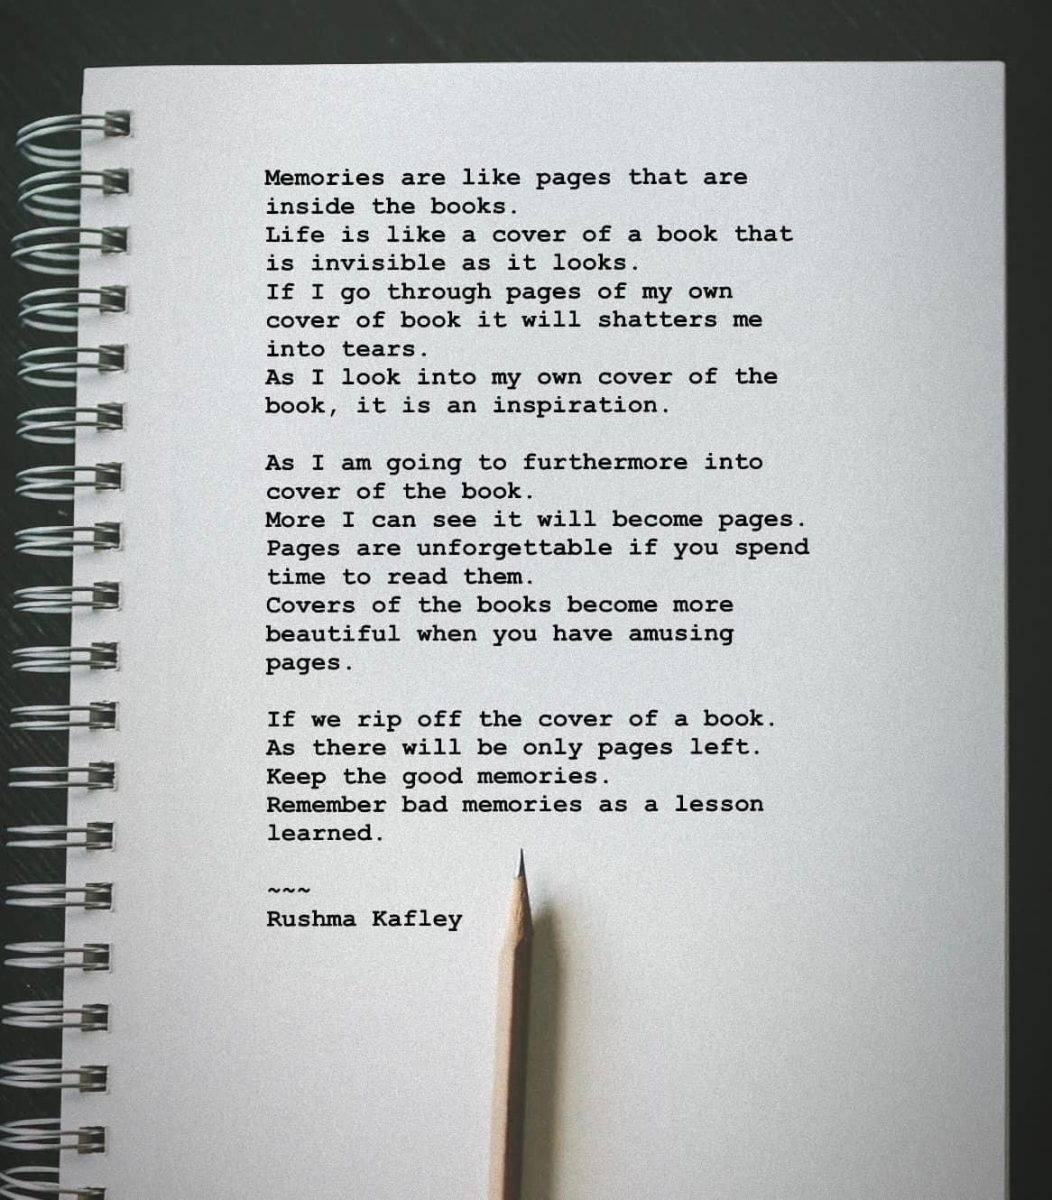 Memories are like pages that are
inside the books.
Life is like a cover of a book that
is invisible as it looks.
If I go through pages of my own
cover of book it will shatters me
into tears.
As I look into my own cover of the
book, it is an inspiration.

As I am going to furthermore into
cover of the book.
More I can see it will become pages.
Pages are unforgettable if you spend
time to read them.
Covers of the books become more
beautiful when you have amusing
pages.

If we rip off the cover of a book.
As there will be only pages left.
Keep the good memories.
Remember bad memories as a lesson
learned.

~~~
Rushma Kafley